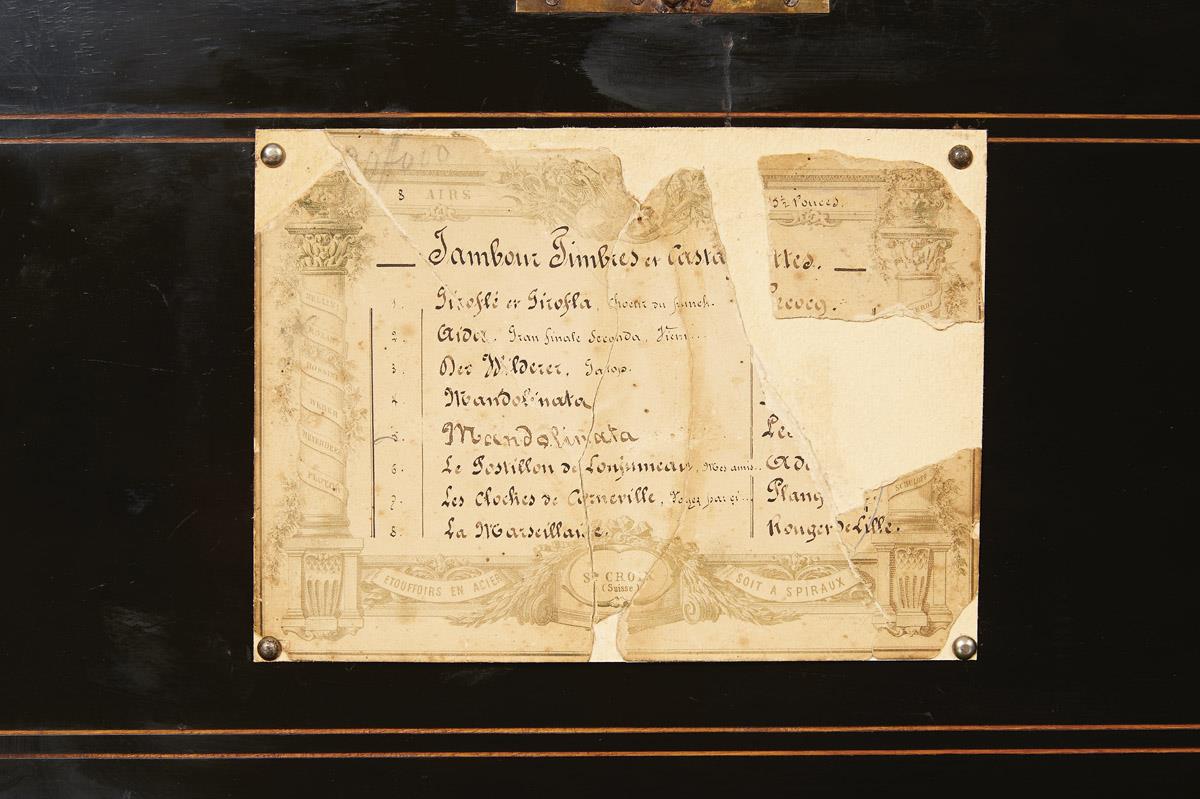 8 AIRS
Pouces.
Tambour Timbres et Casta ttes.
1. Giroflé et Girofla, Choeur du punch. Lecocq.
2. Aida. Gran finale Seconda,
3. Der Wilderer. Galop.
4. Mandolinata
5. Mandolinata Le
6. Le Postillon de Lonjumeau, Mes amis.. Ad
7. Les Cloches de Corneville, Plang
8. La Marseillaise. Rouget de Lille.
WEBER
ETOUFFOIRS EN ACIER
Ste CROIX
(Suisse)
SOIT A SPIRAUX